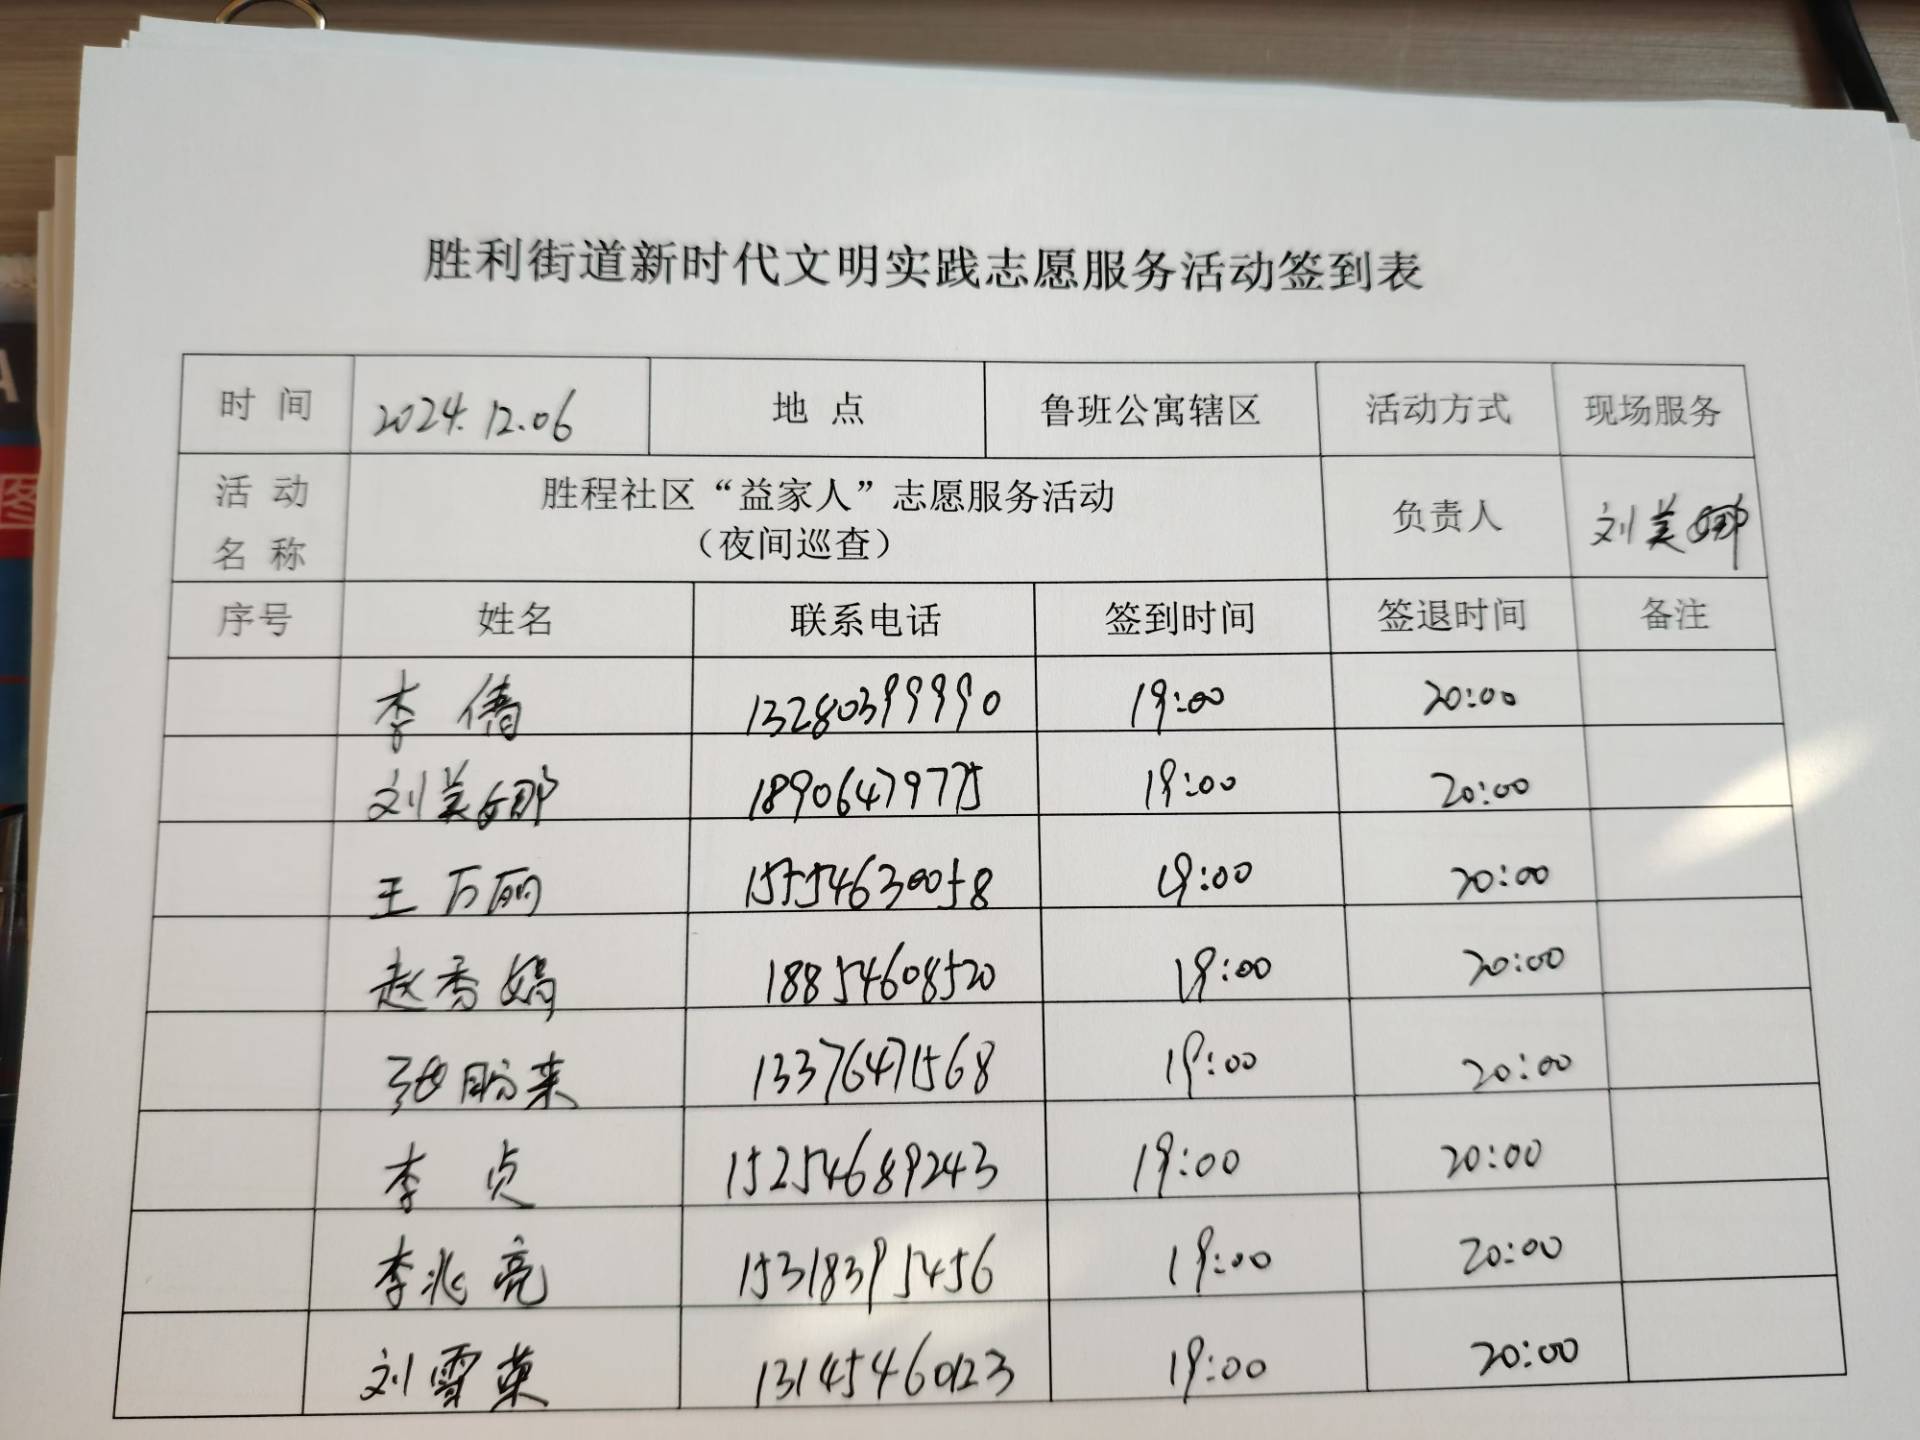 胜利街道新时代文明实践志愿服务活动签到表
时 间 2024.12.06 地 点 鲁班公寓辖区 活动方式 现场服务
活 动 名 称 胜程社区“益家人”志愿服务活动
（夜间巡查） 负责人 刘美娜
序号 姓名 联系电话 签到时间 签退时间 备注
李倩 13280399990 19:00 20:00
刘美娜 18906479775 19:00 20:00
王万丽 15554630058 19:00 20:00
赵秀娟 18854608520 19:00 20:00
张盼来 13376471568 19:00 20:00
李贞 15254689243 19:00 20:00
李兆亮 15318395456 19:00 20:00
刘雪英 13145460123 19:00 20:00